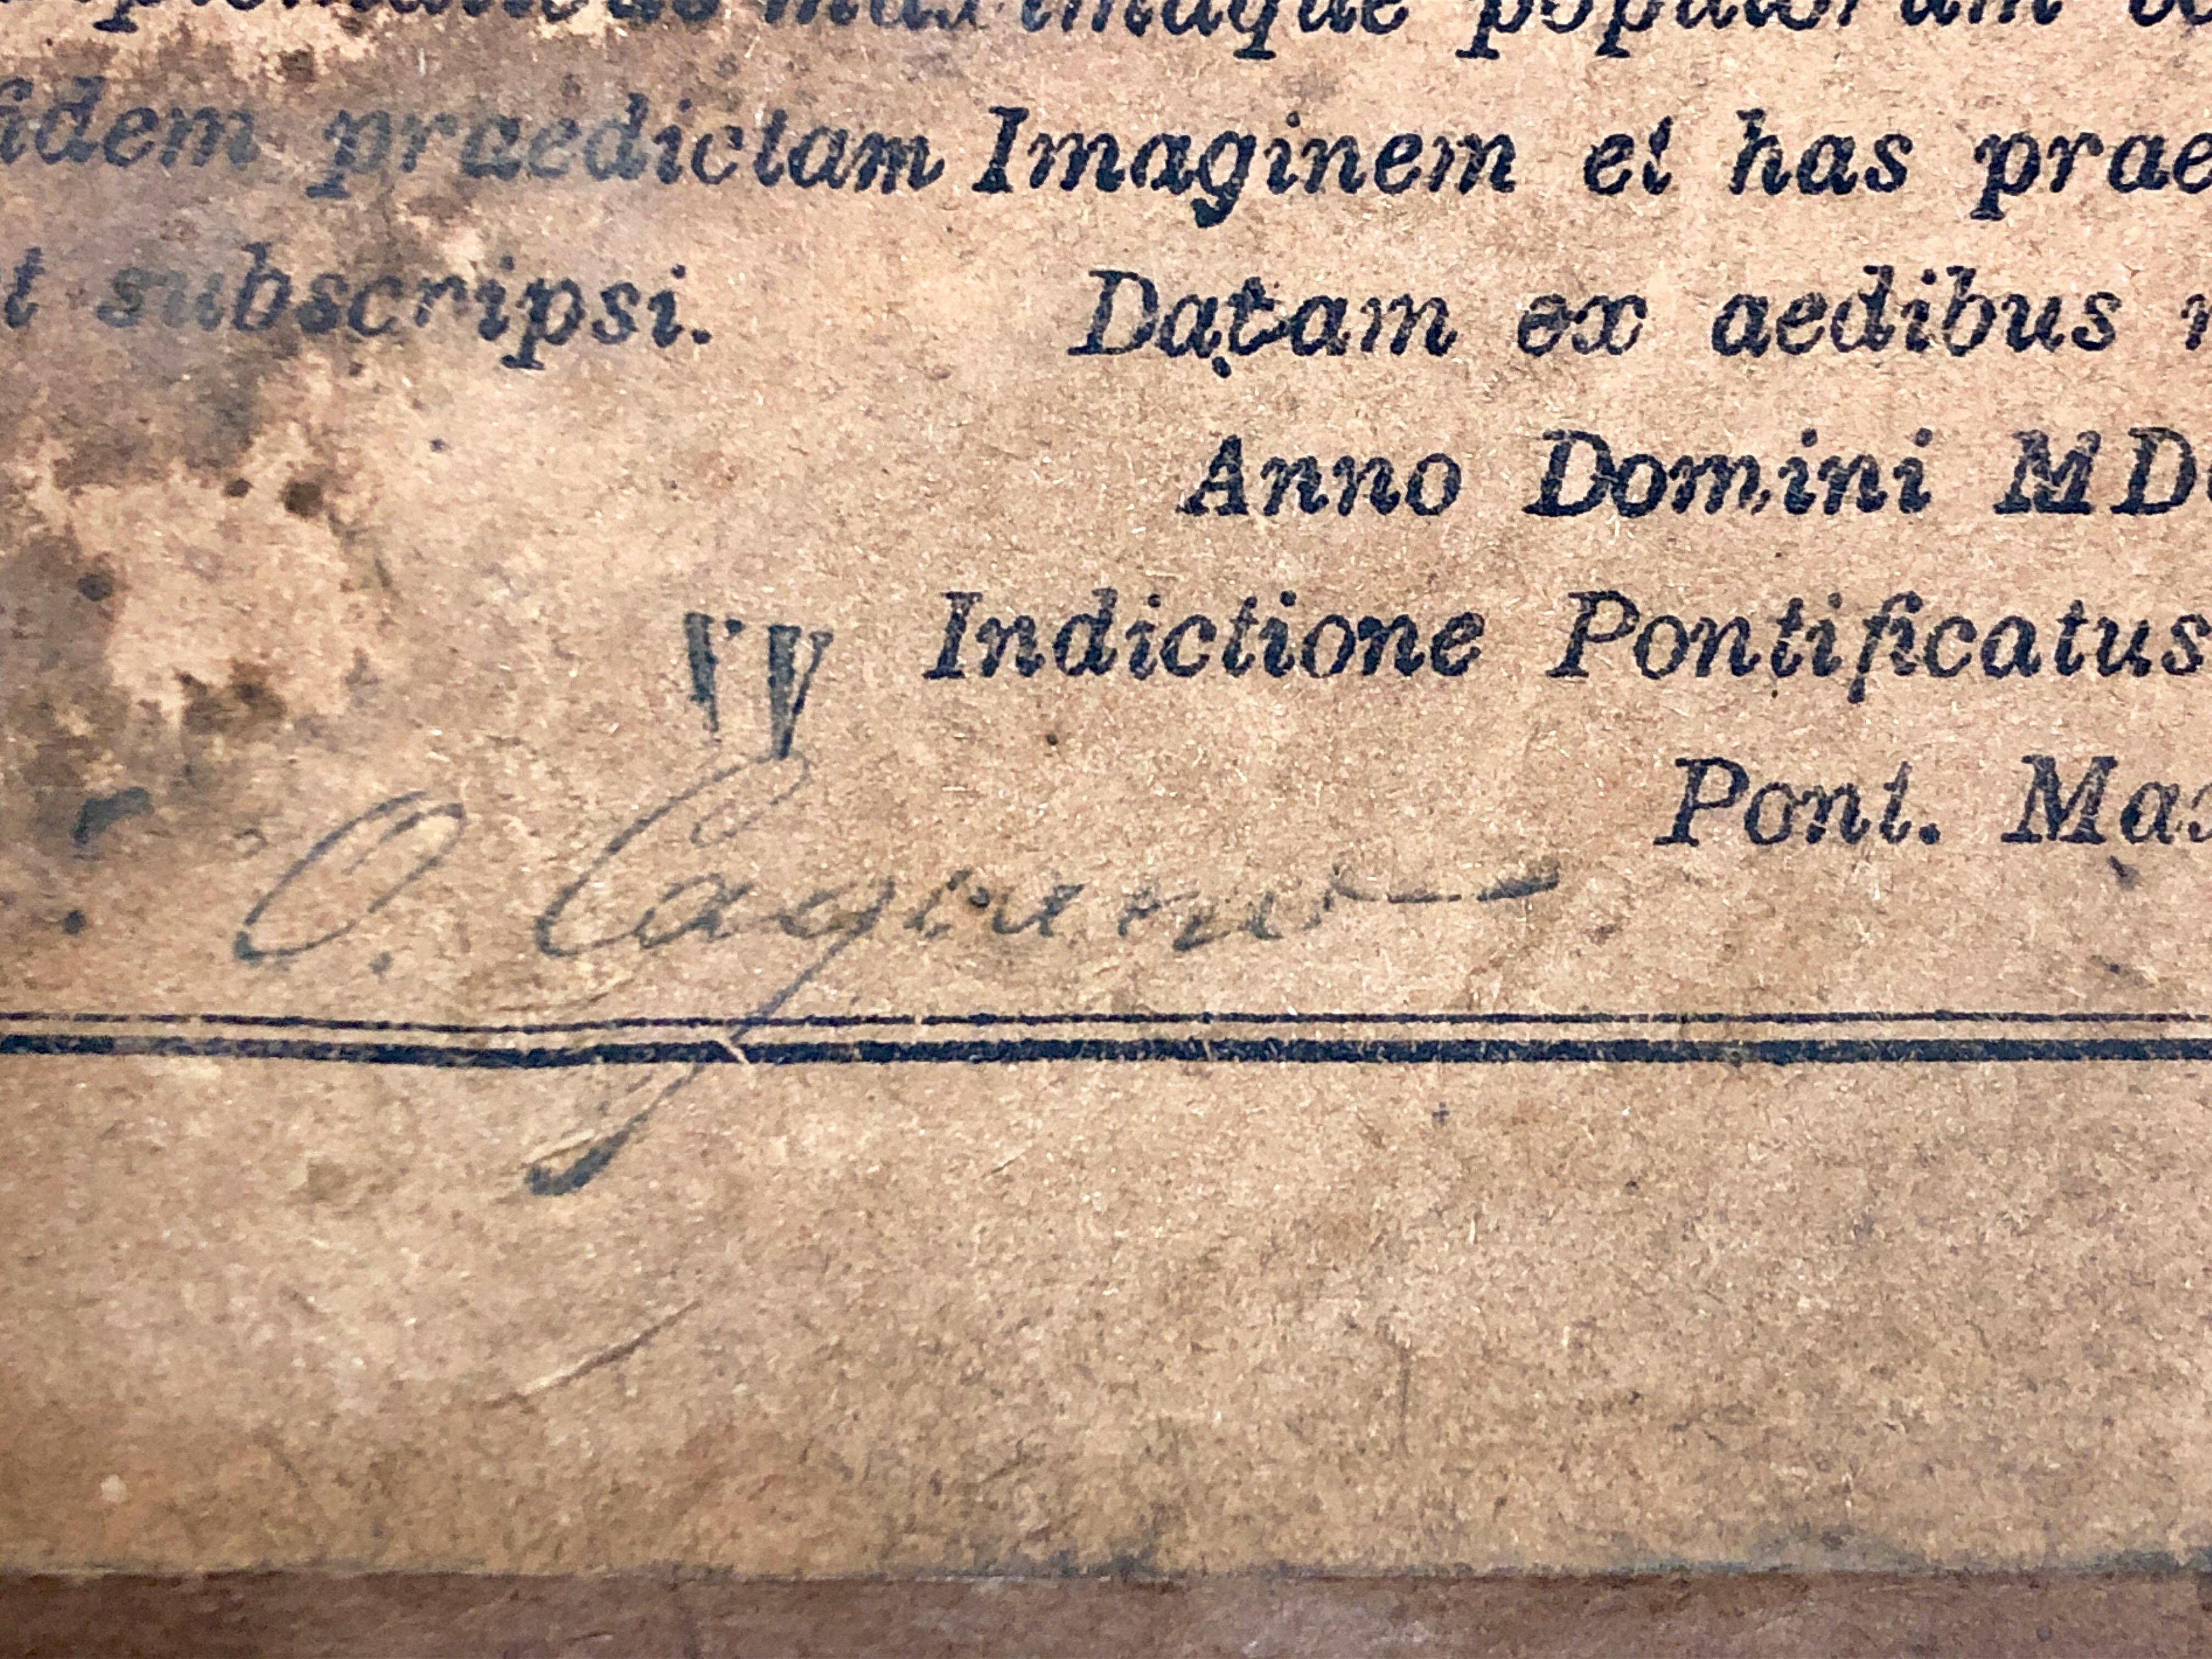 maximaque populorum
fidem praedictam Imaginem et has prae
et subscripsi. Datam ex aedibus
Anno Domini MD
Indictione Pontificatus
Pont. Max
O. Cagiano